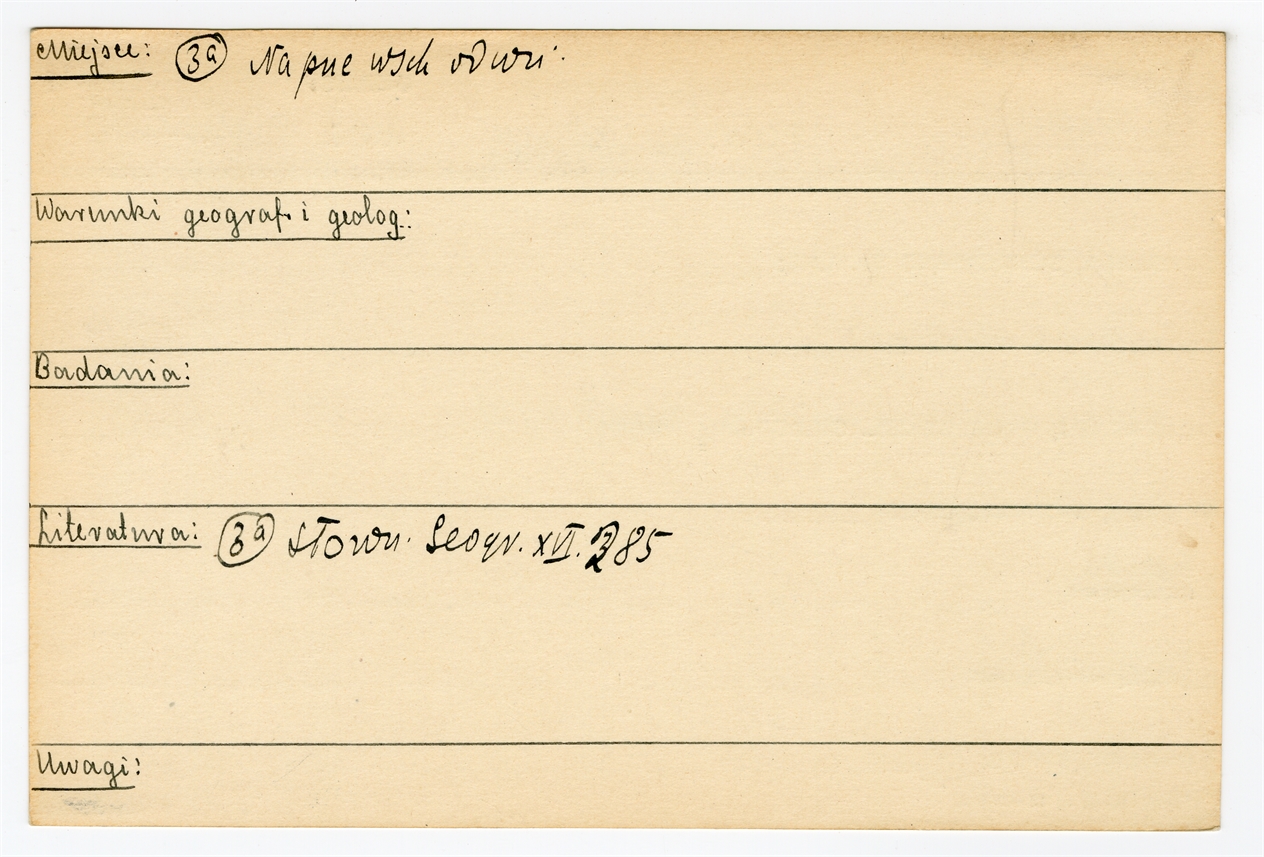 Miejsce: 3a Na pne wsch od wsi.
Warunki geograf. i geolog.:
Badania:
Literatura: 3a Słown. Geogr. XVI. 385
Uwagi: